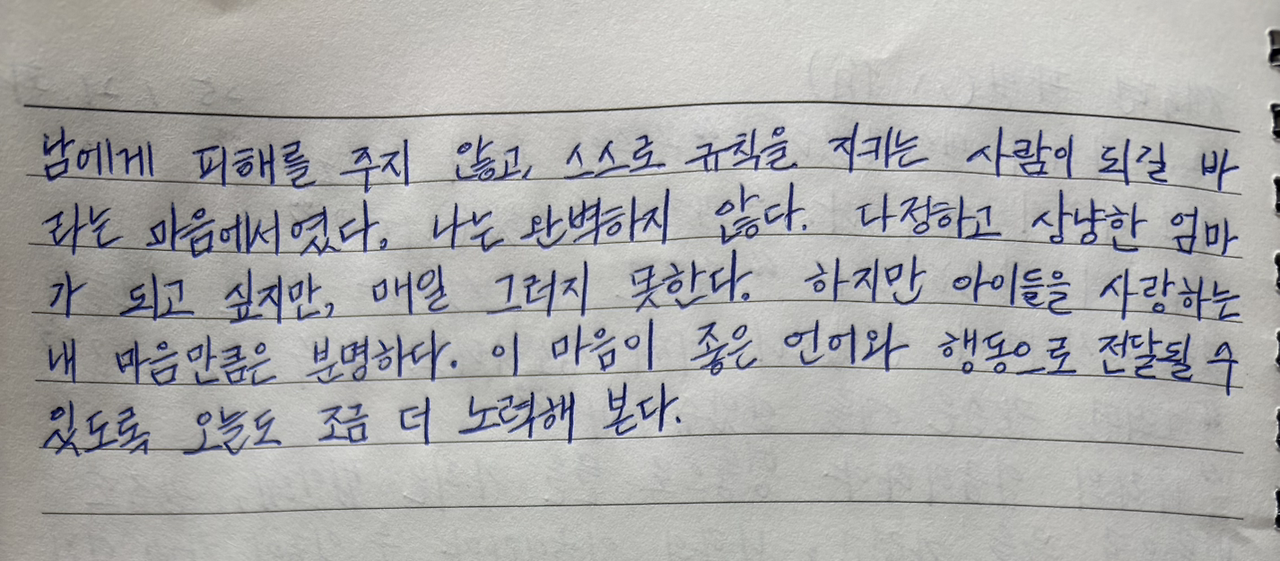 남에게 피해를 주지 않고, 스스로 규칙을 지키는 사람이 되길 바
라는 마음에서였다. 나는 완벽하지 않다. 다정하고 상냥한 엄마
가 되고 싶지만, 매일 그러지 못한다. 하지만 아이들을 사랑하는
내 마음만큼은 분명하다. 이 마음이 좋은 언어와 행동으로 전달될 수
있도록 오늘도 조금 더 노력해 본다.